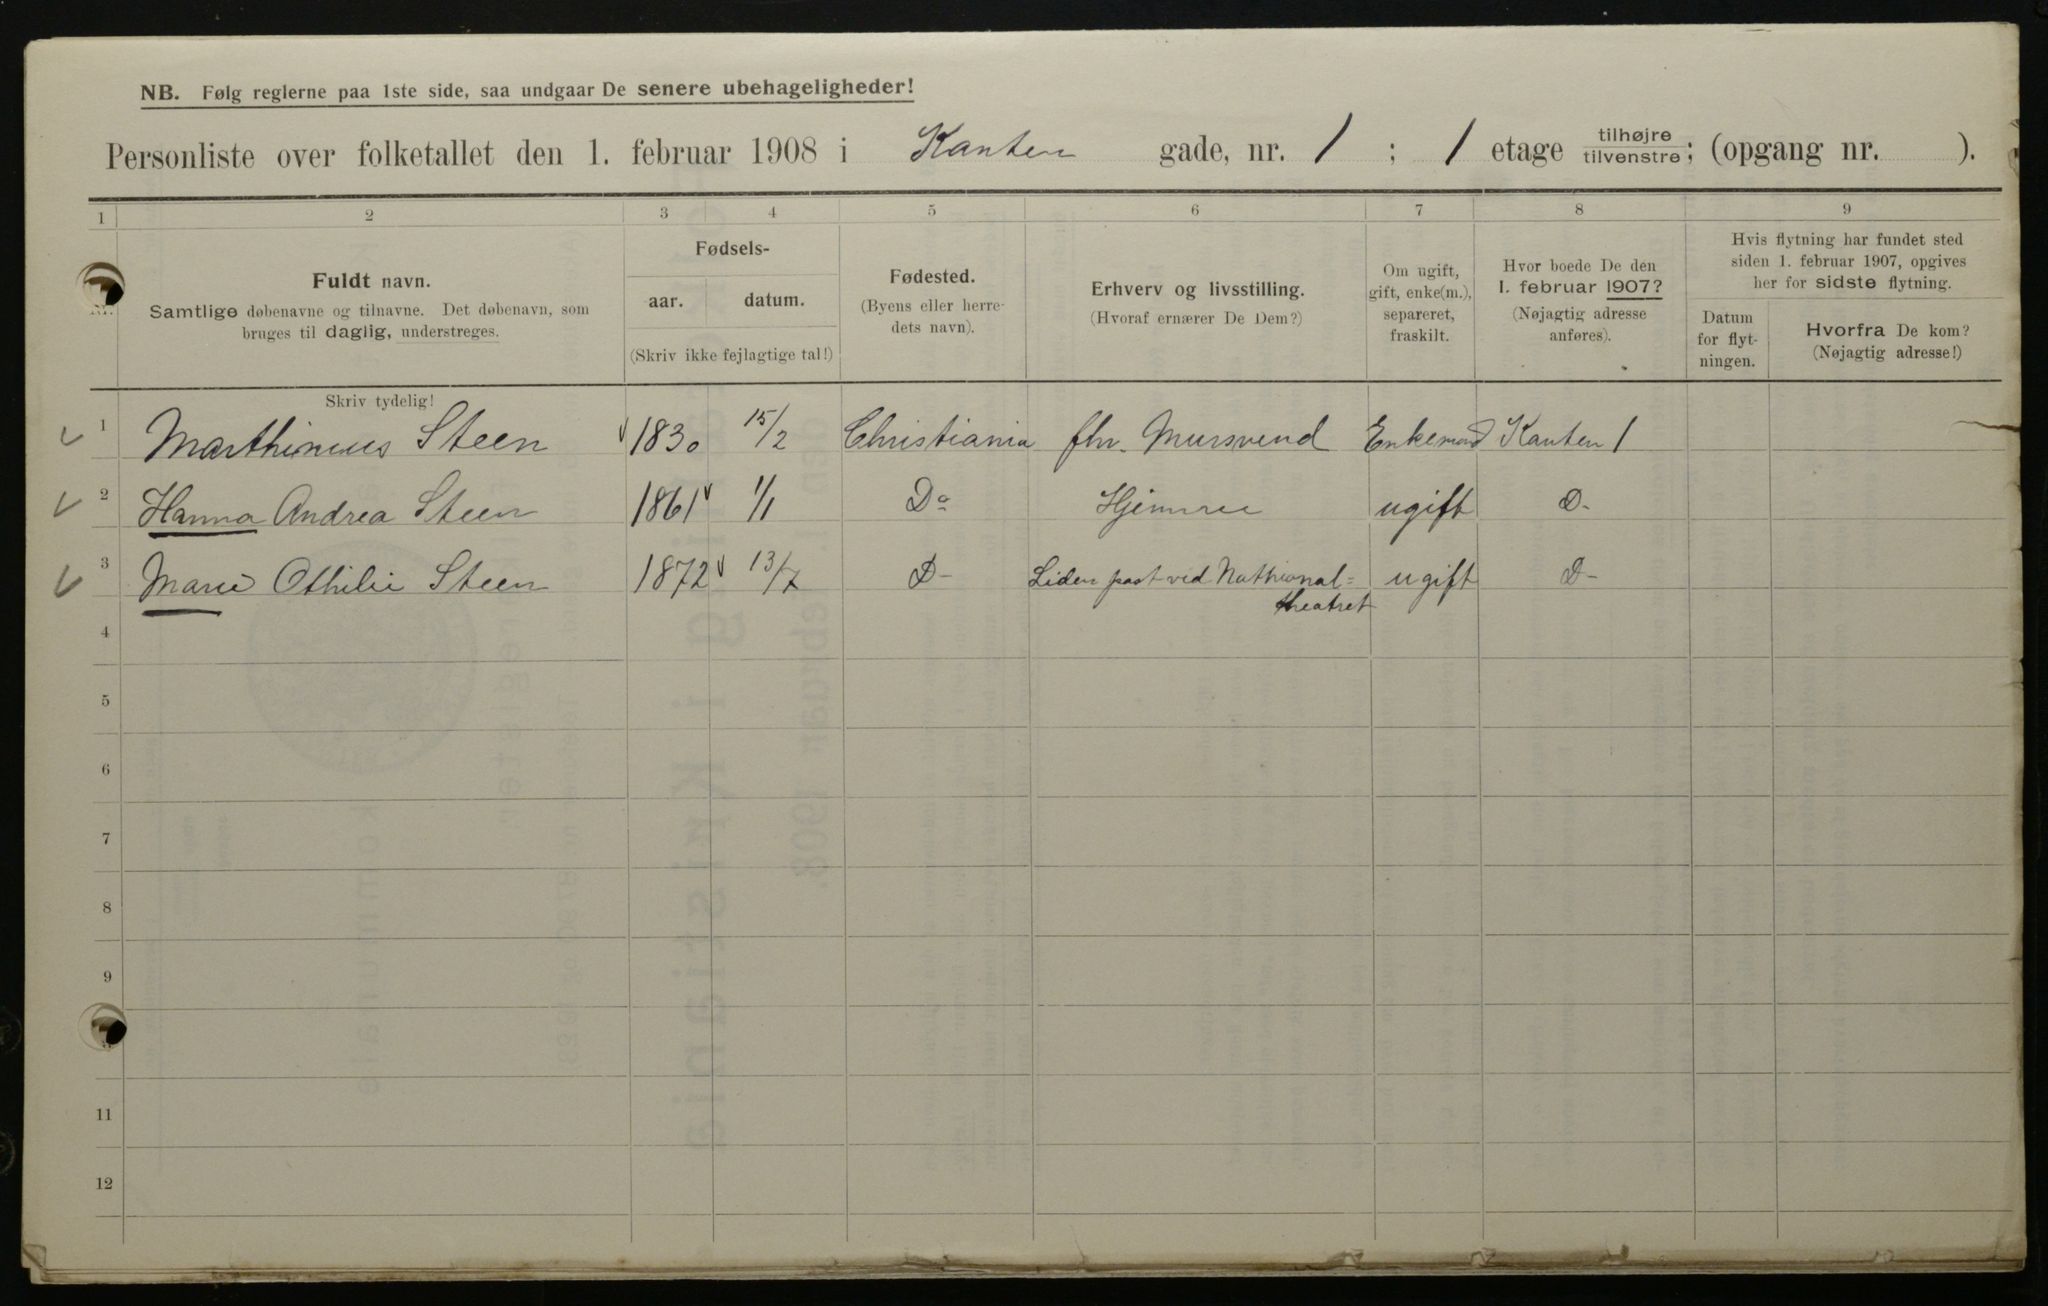 NB. Følg reglerne paa 1ste side, saa undgaar De senere ubehageligheder!
Personliste over folketallet den 1. februar 1908 i Kanten gade, nr. 1 ; 1 etage tilhøjre tilvenstre; (opgang nr. ).
1 2 3 4 5 6 7 8 9
Fuldt navn.
Samtlige døbenavne og tilnavne. Det døbenavn, som
bruges til daglig, understreges.
Fødsels-
aar. datum.
(Skriv ikke fejlagtige tal!)
Fødested.
(Byens eller herre-
dets navn).
Erhverv og livsstilling.
(Hvoraf ernærer De Dem?)
Om ugift,
gift, enke(m.),
separeret,
fraskilt.
Hvor boede De den
1. februar 1907?
(Nøjagtig adresse
anføres).
Hvis flytning har fundet sted
siden 1. februar 1907, opgives
her for sidste flytning.
Datum
for flyt-
ningen.
Hvorfra De kom?
(Nøjagtig adresse!)
Skriv tydelig!
1 Marthinius Steen 1830 15/2 Christiania fhv. Mursvend Enkemand Kanten 1
2 Hanna Andrea Steen 1861 1/1 Do ugift D-
3 Marie Othilie Steen 1872 13/7 D- Liden post vid Nathional=
theatret ugift D-
4
5
6
7
8
9
11
12